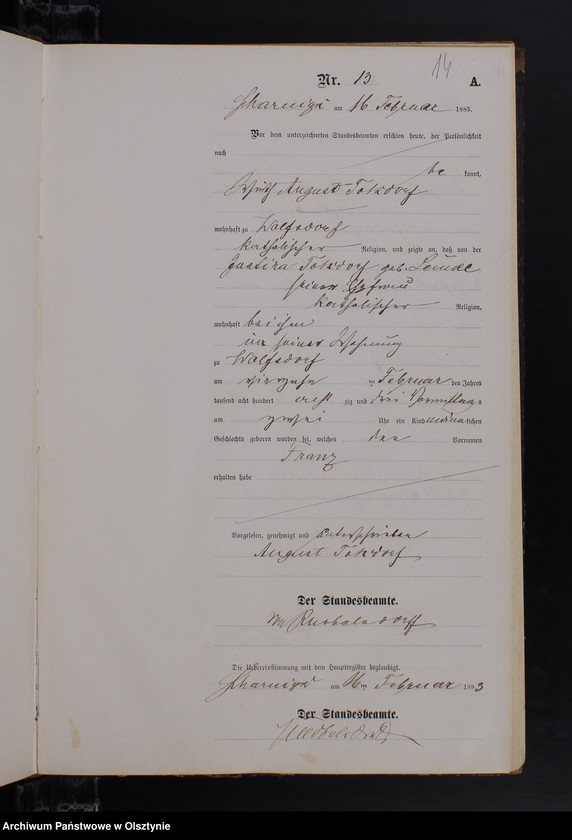 14
Nr. 13 A.
am 16 Februar 1883.
Vor dem unterzeichneten Standesbeamten erschien heute, der Persönlichkeit
nach
be kannt,
Wirth August Tokdorf
wohnhaft zu Wolfsdorf
katholischer Religion, und zeigte an, daß von der
Tokdorf geb.
seiner Ehefrau
katholischer Religion,
wohnhaft bei ihm
in seiner Wohnung
zu Wolfsdorf
am vierzehn ten Februar des Jahres
tausend acht hundert acht zig und drei Vormittags
um zwei Uhr ein Kind männlichen
Geschlechts geboren worden sei, welches den Vornamen
Franz
erhalten habe
Vorgelesen, genehmigt und unterschrieben
August Tokdorf
Der Standesbeamte.
Die Uebereinstimmung mit dem Hauptregister beglaubigt.
am 16ten Februar 1883
Der Standesbeamte.
Archiwum Państwowe w Olsztynie